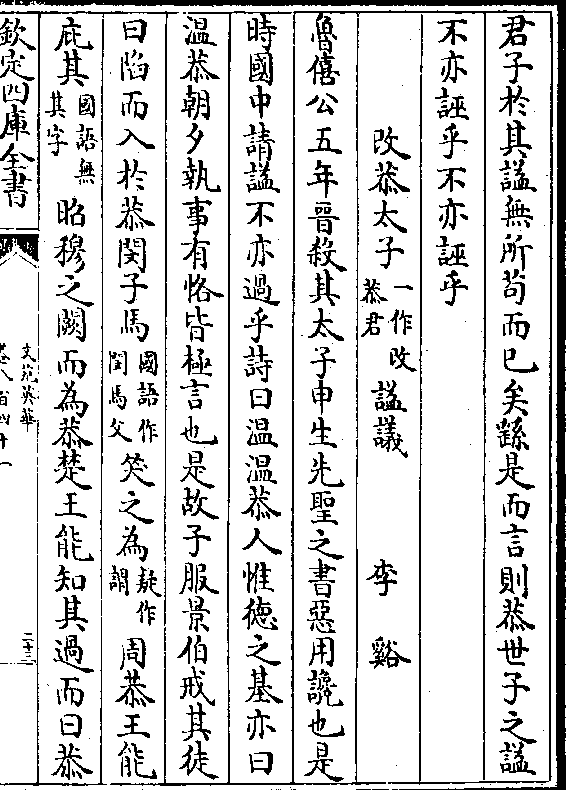 君子於其諡無所苟而已矣繇是而言則恭世子之諡
不亦誣乎不亦誣乎
改恭太子一作改恭君諡議 李谿
魯僖公五年晉殺其太子申生先聖之書惡用讒也是
時國中請諡不亦過乎詩曰温温恭人惟德之基亦曰
温恭朝夕執事有恪皆極言也是故子服景伯戒其徒
曰陷而入於恭閔子馬國語作閔馬父笑之為疑作謂周恭王能
庇其國語無其字昭穆之闕而為恭楚王能知其過而曰恭
欽定四庫全書
文苑英華
卷八百四十一
二十三